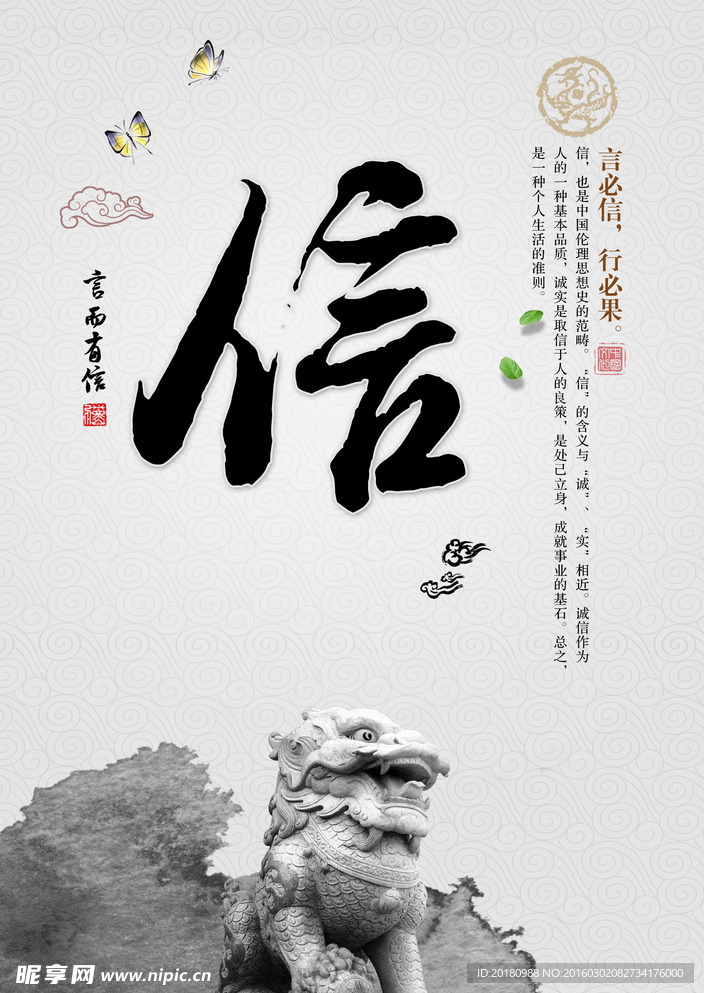 言必信，行必果。
信，也是中国伦理思想史的范畴。“信”的含义与“诚”、“实”相近。诚信作为
人的一种基本品质，诚实是取信于人的良策，是处己立身，成就事业的基石。总之，
是一种个人生活的准则。
信
言而有信
昵享网 www.nipic.cn
ID:20180988 NO:20160302082734176000